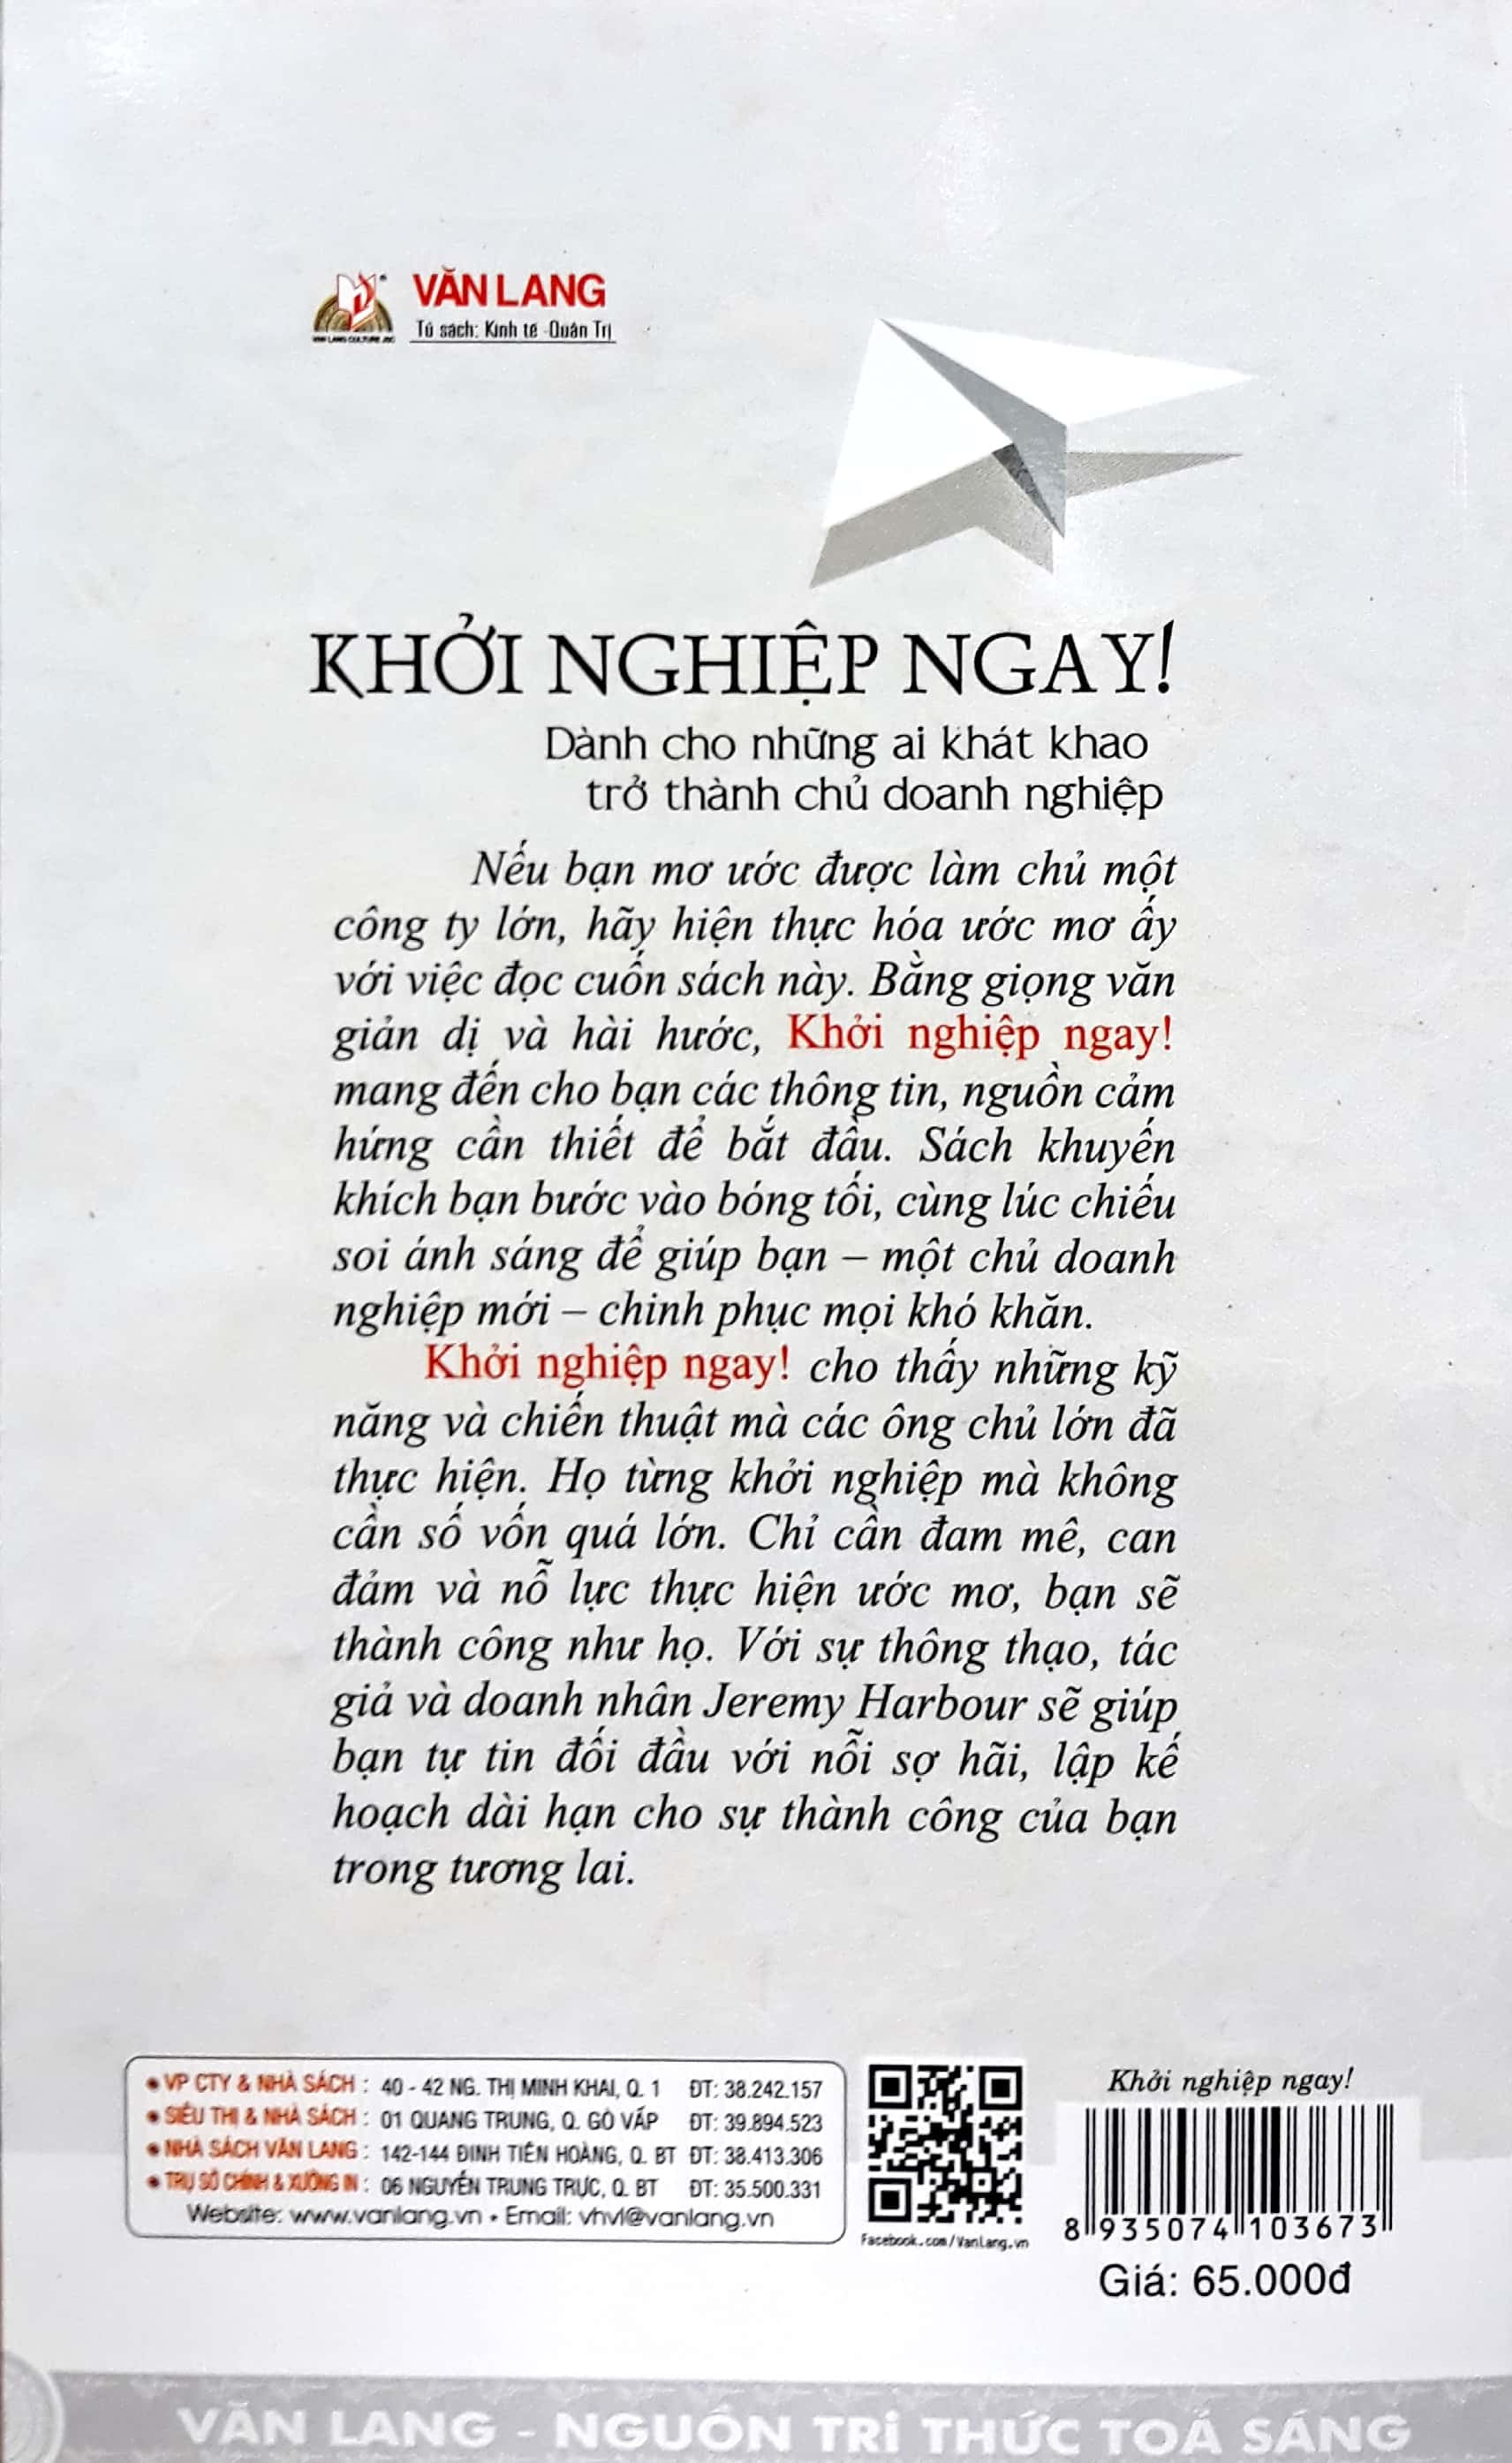 VĂN LANG CULTURE JSC
VĂN LANG
Tủ sách: Kinh tế - Quản Trị
KHỞI NGHIỆP NGAY!
Dành cho những ai khát khao
trở thành chủ doanh nghiệp
Nếu bạn mơ ước được làm chủ một
công ty lớn, hãy hiện thực hóa ước mơ ấy
với việc đọc cuốn sách này. Bằng giọng văn
giản dị và hài hước, Khởi nghiệp ngay!
mang đến cho bạn các thông tin, nguồn cảm
hứng cần thiết để bắt đầu. Sách khuyến
khích bạn bước vào bóng tối, cùng lúc chiếu
soi ánh sáng để giúp bạn – một chủ doanh
nghiệp mới – chinh phục mọi khó khăn.
Khởi nghiệp ngay! cho thấy những kỹ
năng và chiến thuật mà các ông chủ lớn đã
thực hiện. Họ từng khởi nghiệp mà không
cần số vốn quá lớn. Chỉ cần đam mê, can
đảm và nỗ lực thực hiện ước mơ, bạn sẽ
thành công như họ. Với sự thông thạo, tác
giả và doanh nhân Jeremy Harbour sẽ giúp
bạn tự tin đối đầu với nỗi sợ hãi, lập kế
hoạch dài hạn cho sự thành công của bạn
trong tương lai.
• VP CTY & NHÀ SÁCH : 40 - 42 NG. THỊ MINH KHAI, Q. 1 ĐT: 38.242.157
• SIÊU THỊ & NHÀ SÁCH : 01 QUANG TRUNG, Q. GÒ VẤP ĐT: 39.894.523
• NHÀ SÁCH VĂN LANG : 142-144 ĐINH TIÊN HOÀNG, Q. BT ĐT: 38.413.306
• TRỤ SỞ CHÍNH & XƯỞNG IN : 06 NGUYỄN TRUNG TRỰC, Q. BT ĐT: 35.500.331
Website: www.vanlang.vn • Email: vhvl@vanlang.vn
Facebook.com/VanLang.vn
Khởi nghiệp ngay!
8 935074 103673
Giá: 65.000đ
VĂN LANG - NGUỒN TRI THỨC TOẢ SÁNG